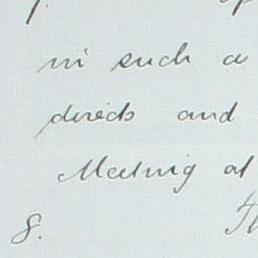 in such a
directs and
Meeting at
8.